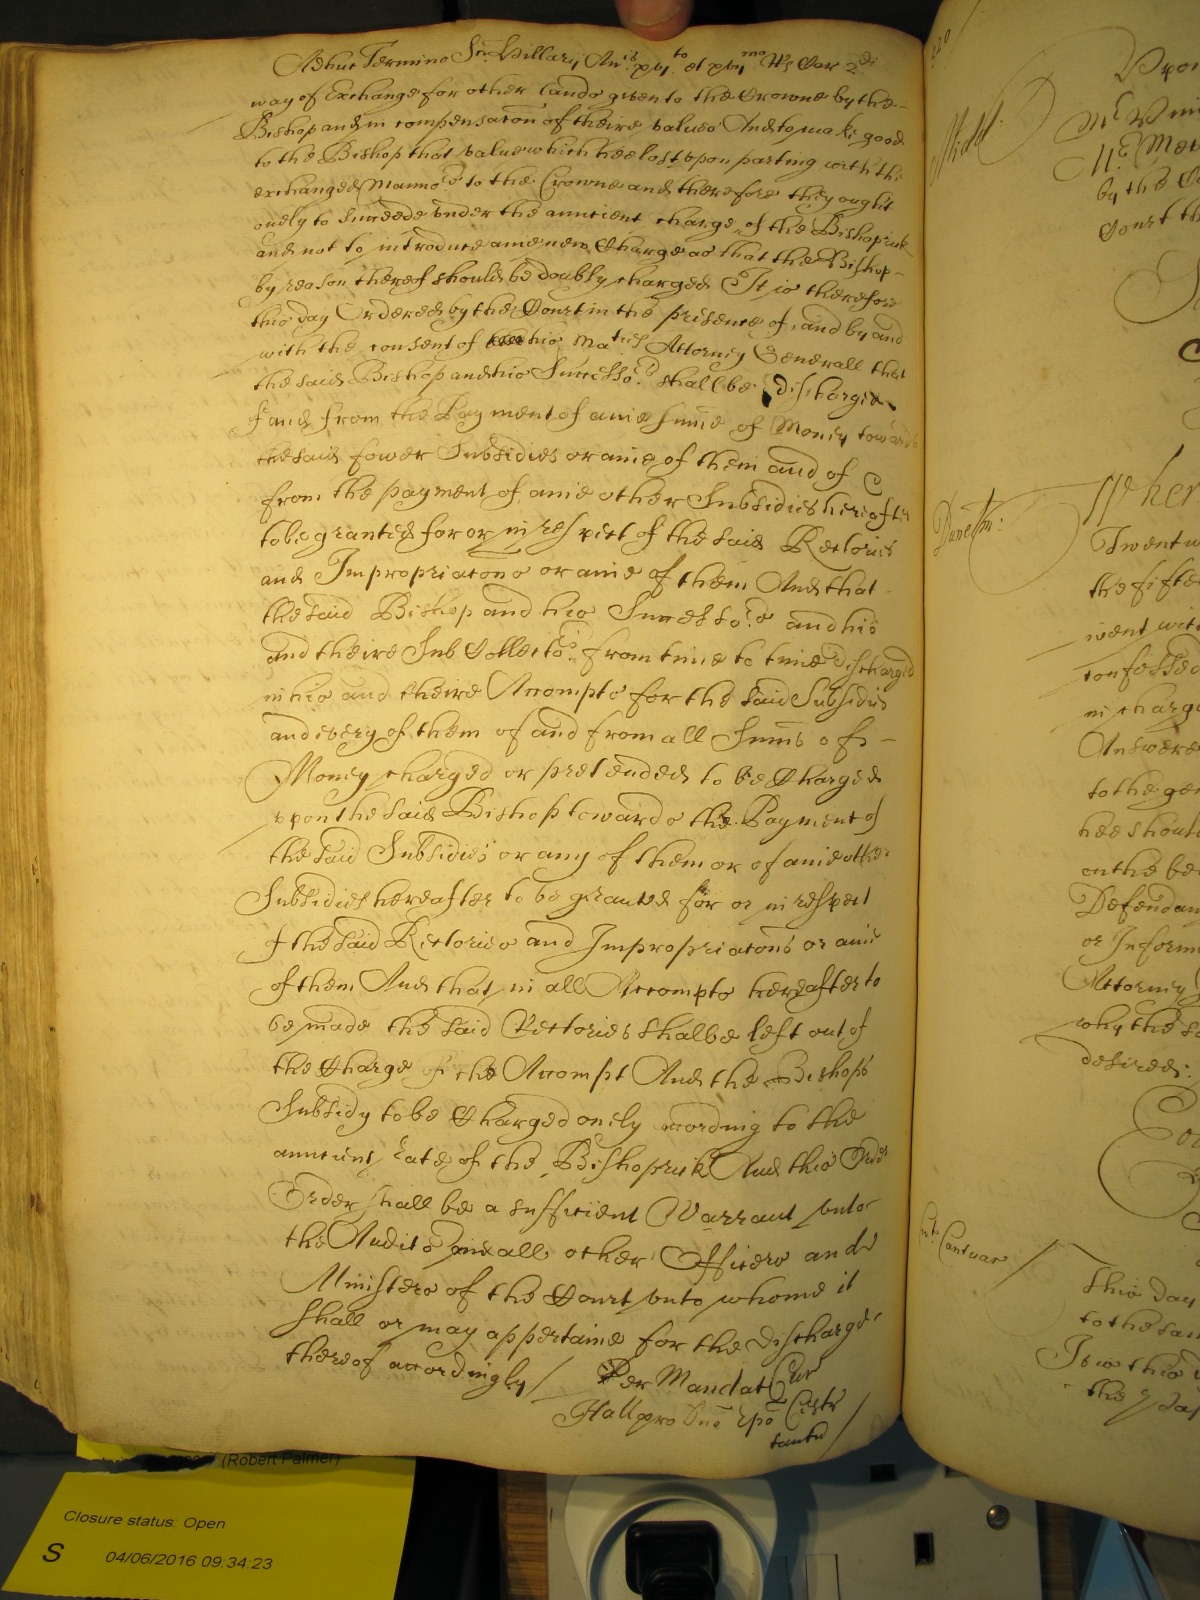 Adhuc Termino Scti Hillarij Annis xvjto et xvijmo Rs Car 2di
way of Exchange for other lands given to the Crowne by the
Bishop and in compensacon of theire values And to make good
to the Bishop that value which hee lost upon parting with the
exchanged Mannors to the Crowne and therefore they ought
onely to succeede under the auncient charge of the Bishoprick
and not to introduce anie new Charge as that the Bishop
by reason thereof should be doubly charged It is therefore
this day Ordered by the Court in the presence of, and by and
with the consent of his Maties Attorney Generall that
the said Bishop and his Successors shall be discharged
of and from the Payment of anie summe of Money towards
the said fower Subsidies or anie of them and of &
from the payment of anie other Subsidies hereafter
to be granted for or in respect of the said Rectories
and Impropriacons or anie of them And that
the said Bishop and his Successors and his
and theire Sub Collectors from time to time discharged
in his and theire Accompts for the said Subsidies
and every of them of and from all Summs of
Money charged or pretended to be Charged
upon the said Bishop towards the Payment of
the said Subsidies or any of them or of anie other
Subsidies hereafter to be granted for or in respect
of the said Rectories and Impropriacons or anie
of them And that in all Accompts hereafter to
be made the said Rectories shalbe left out of
the Charge of the Accompt And the Bishops
Subsidy to be Charged onely according to the
auncient rate of the Bishoprick And this Order
Order shall be a sufficient Warrant unto
the Auditors and all other Officers and
Ministers of the Court unto whome it
shall or may appertaine for the discharge
thereof accordingly / Per Mandat Cur
Hall pro Epo Cicestr
Midd:
by the
Court th
Wher
Twent
the fifte
went wit
confessed
in charge
Answere
to the gen
hee should
on the be
Defendan
or Inform
Attorney
why the s
desired:
Cantuar
This day
to the sam
It is this
the 7 day
(Robert Palmer)
Closure status: Open
S 04/06/2016 09:34:23